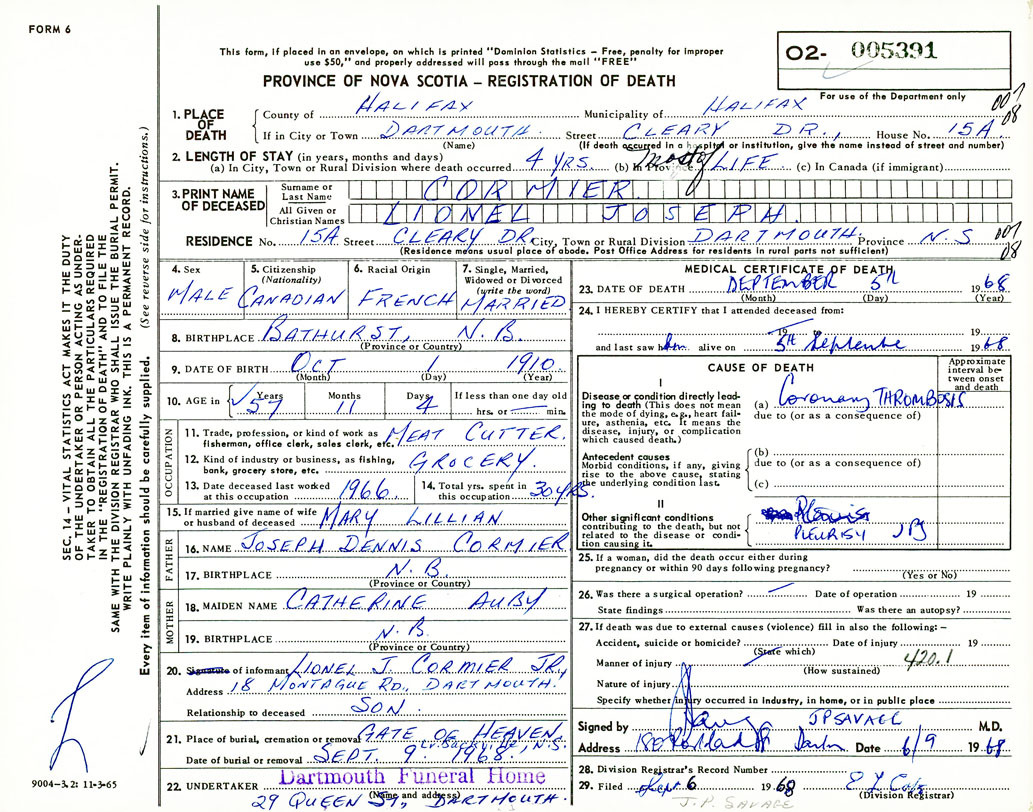 FORM 6
This form, if placed in an envelope, on which is printed "Dominion Statistics – Free, penalty for improper
use $50," and properly addressed will pass through the mail "FREE"
O2- 005391
PROVINCE OF NOVA SCOTIA – REGISTRATION OF DEATH
For use of the Department only
007
08
1. PLACE OF DEATH
County of HALIFAX Municipality of HALIFAX
If in City or Town DARTMOUTH. Street CLEARY DR., House No. 15A.
(Name) (If death occurred in a hospital or institution, give the name instead of street and number)
2. LENGTH OF STAY (in years, months and days)
(a) In City, Town or Rural Division where death occurred 4 YRS. (b) In Province mostly LIFE (c) In Canada (if immigrant)
3. PRINT NAME OF DECEASED
Surname or Last Name CORMIER
All Given or Christian Names LIONEL JOSEPH.
RESIDENCE No. 15A Street CLEARY DR. City, Town or Rural Division DARTMOUTH. Province N.S
007
08
(Residence means usual place of abode. Post Office Address for residents in rural parts not sufficient)
4. Sex MALE
5. Citizenship (Nationality) CANADIAN
6. Racial Origin FRENCH
7. Single, Married, Widowed or Divorced (write the word) MARRIED
8. BIRTHPLACE BATHURST, N.B.
(Province or Country)
9. DATE OF BIRTH OCT 1 1910
(Month) (Day) (Year)
10. AGE in Years 57 Months 11 Days 4 If less than one day old hrs. or min.
OCCUPATION
11. Trade, profession, or kind of work as fisherman, office clerk, sales clerk, etc. MEAT CUTTER.
12. Kind of industry or business, as fishing, bank, grocery store, etc. GROCERY.
13. Date deceased last worked at this occupation 1966
14. Total yrs. spent in this occupation 30 YRS.
15. If married give name of wife or husband of deceased MARY LILLIAN
FATHER
16. NAME JOSEPH DENNIS CORMIER
17. BIRTHPLACE N.B.
(Province or Country)
MOTHER
18. MAIDEN NAME CATHERINE AUBY
19. BIRTHPLACE N.B.
(Province or Country)
20. Signature of informant LIONEL J. CORMIER JR.,
Address 18 MONTAGUE RD., DARTMOUTH.
Relationship to deceased SON.
21. Place of burial, cremation or removal GATE OF HEAVEN,
Lr. Sackville, N.S.
Date of burial or removal SEPT. 9. 1968.
22. UNDERTAKER Dartmouth Funeral Home
(Name and address)
29 QUEEN ST, DARTMOUTH.
MEDICAL CERTIFICATE OF DEATH
23. DATE OF DEATH SEPTEMBER 5TH 1968
(Month) (Day) (Year)
24. I HEREBY CERTIFY that I attended deceased from:
19 19
and last saw him alive on 5th Septembe 1968
CAUSE OF DEATH
Approximate interval between onset and death
I
Disease or condition directly leading to death (This does not mean the mode of dying, e.g., heart failure, asthenia, etc. It means the disease, injury, or complication which caused death.)
(a) Coronary THROMBOSIS
due to (or as a consequence of)
Antecedent causes
Morbid conditions, if any, giving rise to the above cause, stating the underlying condition last.
(b)
due to (or as a consequence of)
(c)
II
Other significant conditions contributing to the death, but not related to the disease or condition causing it.
Pleurisy
PLEURISY JPS
25. If a woman, did the death occur either during pregnancy or within 90 days following pregnancy?
(Yes or No)
26. Was there a surgical operation? Date of operation 19
State findings Was there an autopsy?
27. If death was due to external causes (violence) fill in also the following:–
Accident, suicide or homicide? Date of injury 19
(State which)
420.1
Manner of injury
(How sustained)
Nature of injury
Specify whether injury occurred in industry, in home, or in public place
Signed by JP SAVAGE M.D.
Address Portland St Date 6/9 1968
28. Division Registrar's Record Number
29. Filed Sept 6 1968
(Division Registrar)
J.P. SAVAGE
SEC. 14 – VITAL STATISTICS ACT MAKES IT THE DUTY
OF THE UNDERTAKER OR PERSON ACTING AS UNDER-
TAKER TO OBTAIN ALL THE PARTICULARS REQUIRED
IN THE "REGISTRATION OF DEATH" AND TO FILE THE
SAME WITH THE DIVISION REGISTRAR WHO SHALL ISSUE THE BURIAL PERMIT.
WRITE PLAINLY WITH UNFADING INK. THIS IS A PERMANENT RECORD.
Every item of information should be carefully supplied. (See reverse side for instructions.)
9004–3.2: 11-3-65